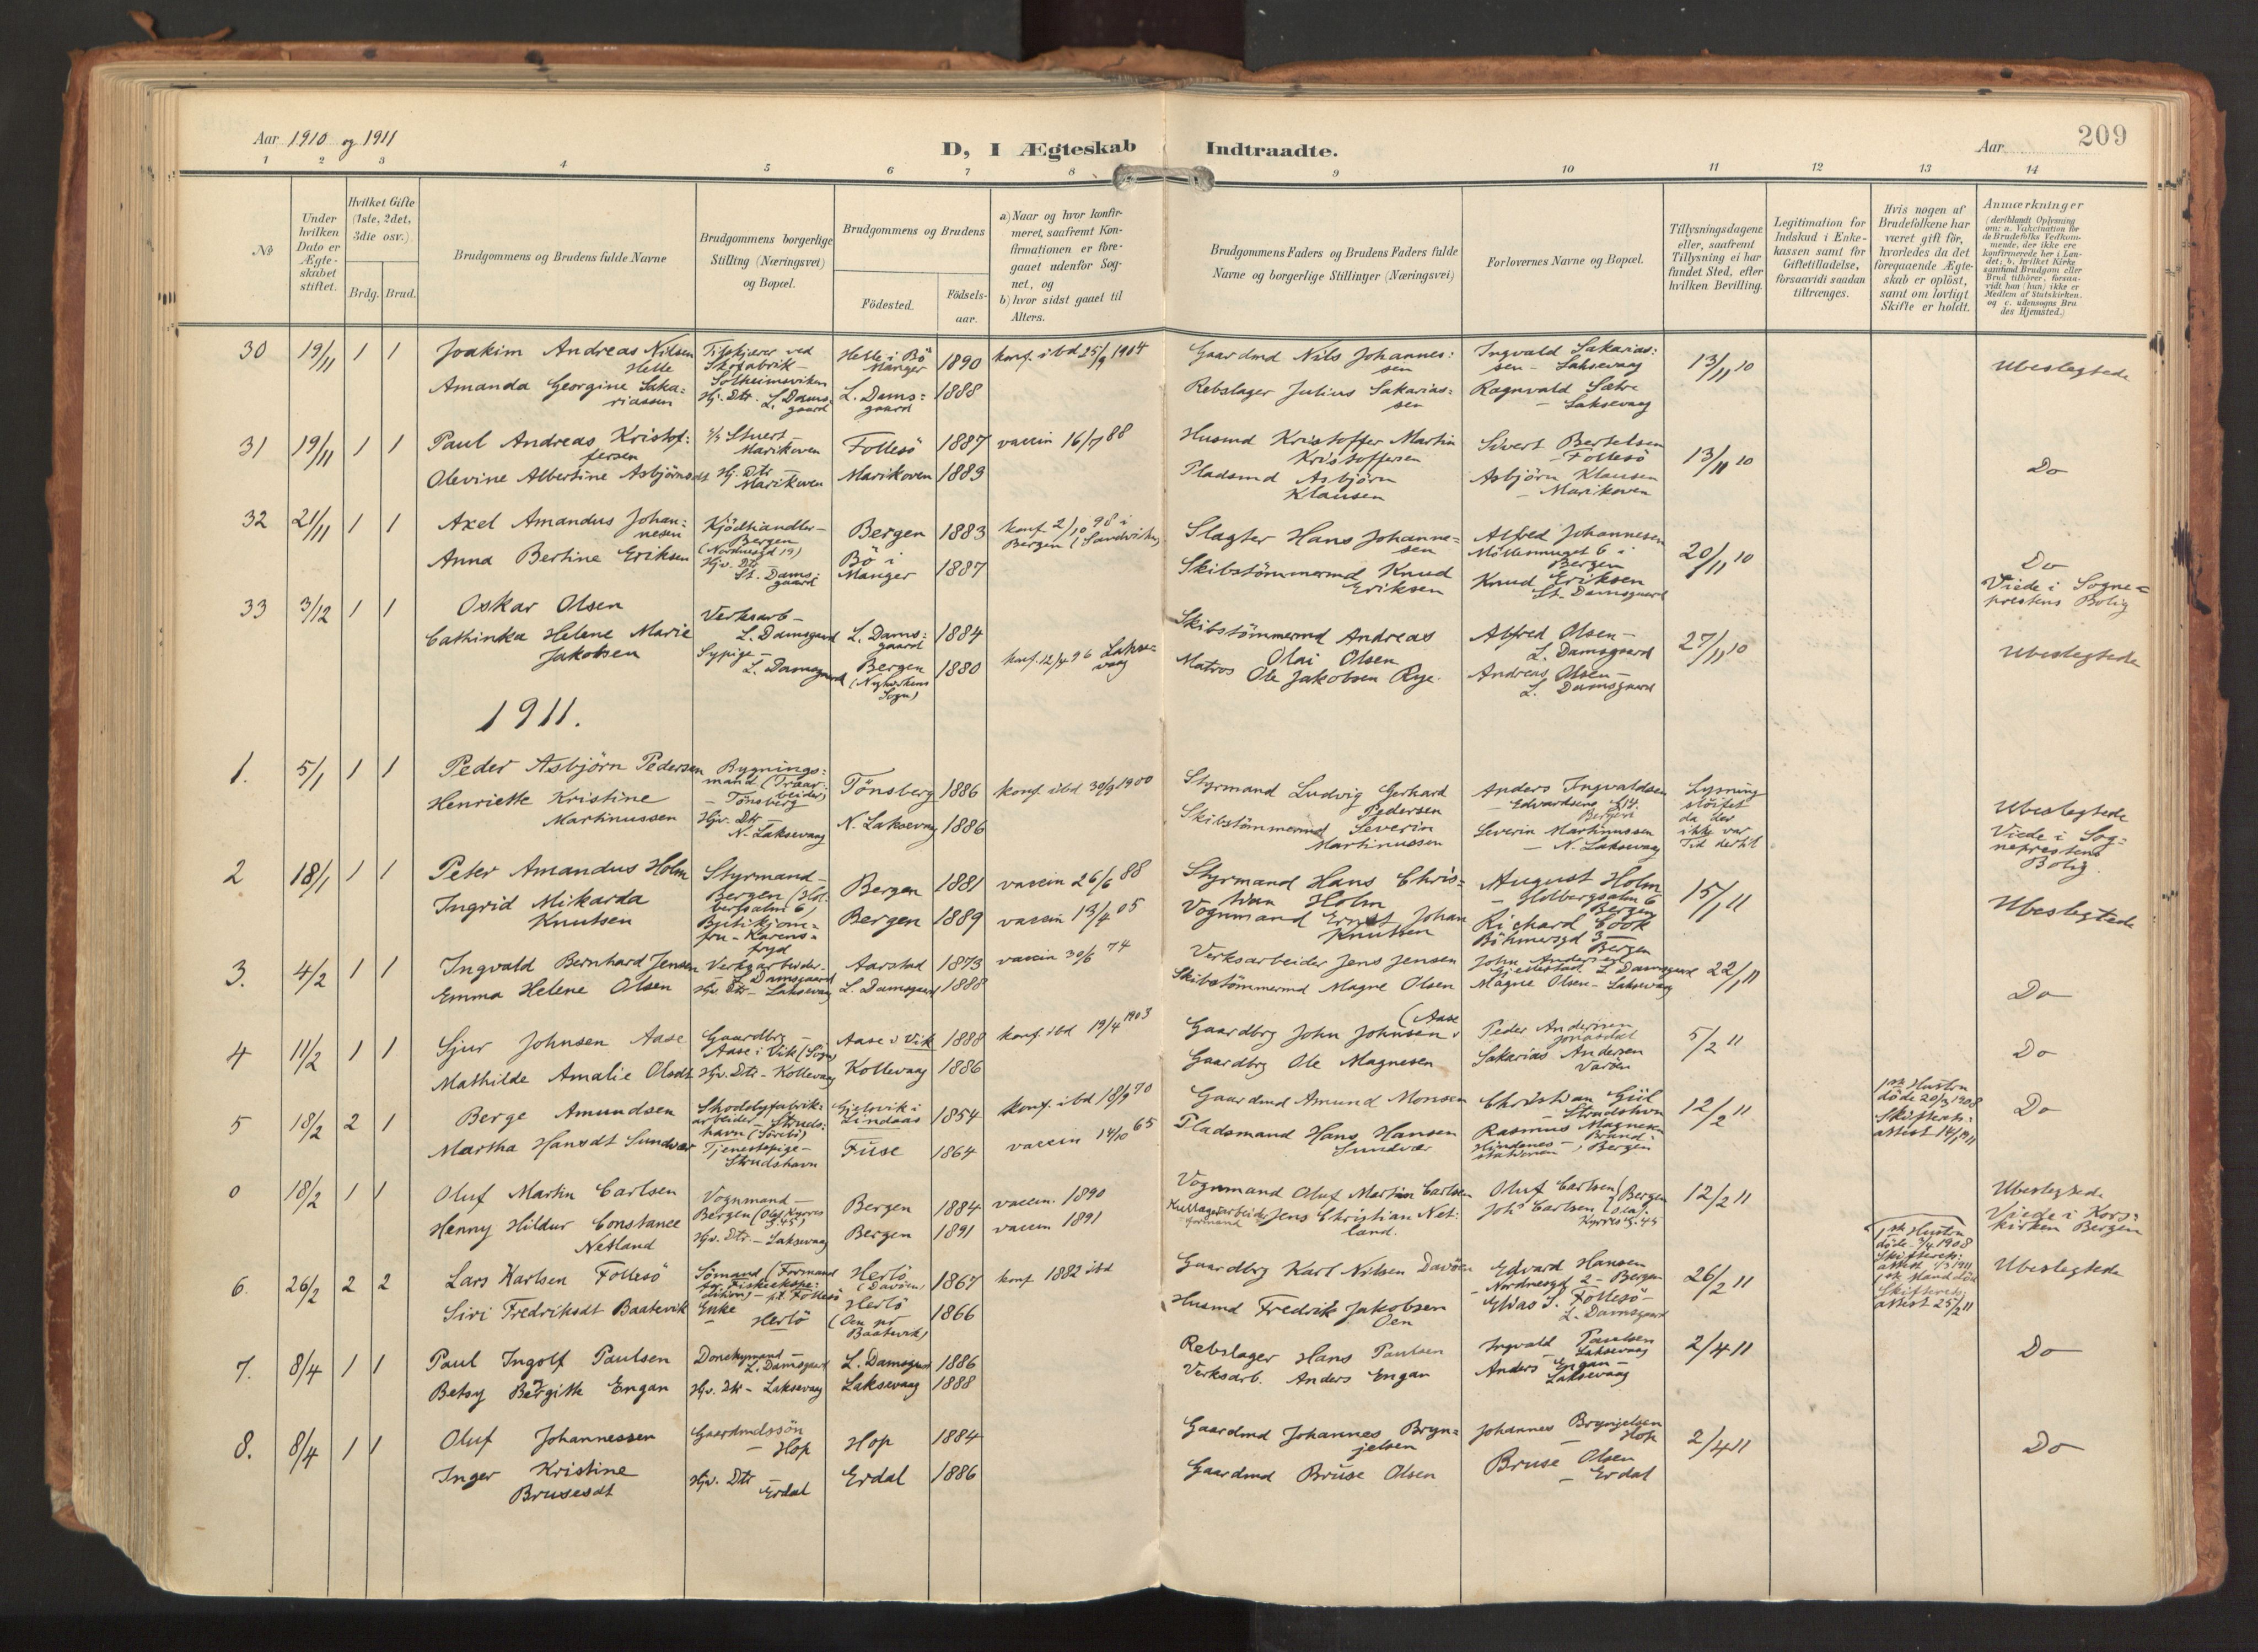 Aar 1910 og 1911
D, I Ægteskab Indtraadte.
Aar
209
1 2 3 4 5 6 7 8 9 10 11 12 13 14
No
Under hvilken Dato er Ægteskabet stiftet.
Hvilket Gifte (1ste, 2det, 3die osv.).
Brdg. Brud.
Brudgommens og Brudens fulde Navne
Brudgommens borgerlige Stilling (Næringsvei) og Bopæl.
Brudgommens og Brudens
Födested.
Födselsaar.
a) Naar og hvor konfirmeret, saafremt Konfirmationen er foregaaet udenfor Sognet, og
b) hvor sidst gaaet til Alters.
Brudgommens Faders og Brudens Faders fulde Navne og borgerlige Stillinger (Næringsvei)
Forlovernes Navne og Bopæl.
Tillysningsdagene eller, saafremt Tillysning ei har fundet Sted, efter hvilken Bevilling.
Legitimation for Indskud i Enkekassen samt for Giftetilladelse, forsaavidt saadan tiltrænges.
Hvis nogen af Brudefolkene har været gift för, hvorledes da det foregaaende Ægteskab er oplöst, samt om lovligt Skifte er holdt.
Anmærkninger
(deriblandt Oplysning om: a. Vakcination for de Brudefolks Vedkommende, der ikke ere konfirmerede her i Landet; b. hvilket Kirkesamfund Brudgom eller Brud tilhörer, forsaavidt han (hun) ikke er Medlem af Statskirken. og c. udensogns Brudes Hjemsted.)
30 19/11 1 1 Joakim Andreas Nilsen Helle
Helle i Bö Manger 1890 konf. ibd 25/9 1904
Gaardmd Nils Johannessen
Ingvald Sakariassen - Laksevaag
13/11 10
Ubeslegtede
Amanda Georgine Sakariassen
Hj. Dtr. L. Damsgaard
L. Damsgaard 1888
Rebslager Julius Sakariassen
Ragnvald Sætre - Laksevaag
31 19/11 1 1 Paul Andreas Kristoffersen
Stuert - Marikoven
Follesö 1887 vaccin 16/7 88
Husmd Kristoffer Martin Kristoffersen
Sivert Bertelsen - Follesö
13/11 10
Do
Olevine Albertine Asbjörnsdt
Hj. Dtr - Marikoven
Marikoven 1889
Pladsmd Asbjörn Klausen
Asbjörn Klausen - Marikoven
32 21/11 1 1 Axel Amandus Johannesen
Kjödhandler - Bergen (Nordnesgd 19)
Bergen 1883 konf 2/10 98 i Bergen (Sandviken)
Slagter Hans Johannesen
Alfred Johannesen
Bergen
20/11 10
Do
Viede i Sogneprestens Bolig
Anna Bertine Eriksen
Hjv. Dtr - St. Damsgaard
Bö i Manger 1887
Skibstömmermd Knud Eriksen
Knud Eriksen St. Damsgaard
33 3/12 1 1 Oskar Olsen
Verksarb - L. Damsgaard
L. Damsgaard 1884
Skibstömmermd Andreas Olai Olsen
Alfred Olsen - L. Damsgaard
27/11 10
Ubeslegtede
Cathinka Helene Marie Jakobsen
Sypige - L. Damsgaard
Bergen (Nykirkens Sogn) 1880
konf. 12/4 96 Laksevaag
Matros Ole Jakobsen Rye
Andreas Olsen - L. Damsgaard
1911.
1. 5/1 1 1 Peder Asbjörn Pedersen
Bygningsmand (Træarbeider) - Tönsberg
Tönsberg 1886 konf ibd 30/9 1900
Styrmand Ludvig Gerhard Pedersen
Anders Ingvaldsen
Bergen
Lysning slöifet da der ikke var Tid dertil
Ubeslegtede
Viede i Sogneprestens Bolig.
Henriette Kristine Martinussen
Hjv. Dtr - N. Laksevaag
N. Laksevaag 1886
Skibstömmermd Severin Martinussen
Severin Martinussen - N. Laksevaag
2 18/1 1 1 Peter Amandus Holm
Styrmand - Bergen (Holbergsalm 6)
Bergen 1881 vaccin 26/6 88
Styrmand Hans Christian Holm
August Holm - Holbergsalm 6 Bergen
15/1 11
Ubeslegtede
Ingrid Mikarda Knutsen
Butikjomfru - Karensfryd
Bergen 1889 vaccin 13/4 05
Vognmand Ernst Johan Knutsen
Richard Cook Böhmersgd 3 - Bergen
3. 4/2 1 1 Ingvald Bernhard Jensen
Verksarbeider - L. Damsgaard
Aarstad 1873 vaccin 30/6 74
Verksarbeider Jens Jensen
22/1 11
Do
Emma Helene Olsen
Hjv. Dtr - Laksevaag
L. Damsgaard 1888
Skibstömmermd Magne Olsen
Magne Olsen - Laksevaag
4 11/2 1 1 Sjur Johnsen Aase
Gaardbrg - Aase i Vik (Sogn)
Aase i Vik 1888 konf. ibd 19/4 1903
Gaardbrg John Johnsen (Aase
Peder Andersen
5/2 11
Do
Mathilde Amalie Olsdt
Hjv. Dtr - Kollevaag
Kollevaag 1886
Gaardbrg Ole Magnesen
Sakarias Andersen
5 18/2 2 1 Berge Amundsen
Shoddyfabrikarbeider - Strudshavn
Lindaas 1854 konf. ibd 18/9 70
Gaardmd Amund Monsen
Christian Giil - Strudshvn
12/2 11
1ste Hustru döde 20/3 1908 Skifteratsattest 14/1 1911
Do
Martha Hansdt Sundvær
Tjenestepige - Strudshavn
Fuse 1864 vaccin 14/10 65
Pladsmand Hans Hansen Sundvær
Rasmus Magnesen
Bergen
0 18/2 1 1 Oluf Martin Carlsen
Vognmand - Bergen (Olaf Kyrres G. 45)
Bergen 1884 vaccin. 1890
Vognmand Oluf Martin Carlsen
Oluf Carlsen
12/2 11
Ubeslegtede
Viede i Korskirken Bergen
Henny Hildur Constance Netland
Hjv. Dtr. - Laksevaag
Bergen 1891 vaccin 1891
Jens Christian Netland.
Johs Carlsen
Bergen (Olaf Kyrres G. 45
6. 26/2 2 2 Lars Karlsen Follesö
Sömand (Formand
Follesö
Herlö (Davöen) 1867 konf 1882 ibd
Gaardbrg Karl Nilsen Davöen
Edvard Hansen - Nordnesgd 2 - Bergen
26/2 11
1ste Hustru döde 3/4 1908
Ubeslegtede
Siri Fredriksdt Baatevik
Enke - Herlö
Herlö (Oen pr Baatevik) 1866
Husmd Fredrik Jakobsen Oen
Elias S. Follesö - L. Damsgaard
attest 25/2 11
7. 8/4 1 1 Paul Ingolf Paulsen
Donkymand - L. Damsgaard
L. Damsgaard 1886
Rebslager Hans Paulsen
Ingvald Paulsen - Laksevaag
2/4 11
Do
Betsy Bergitte Engan
Hjv. Dtr - Laksevaag
Laksevaag 1888
Verksarb. Anders Engan
Anders Engan - Laksevaag
8. 8/4 1 1 Oluf Johannessen
Gaardmdssön - Hop
Hop 1884
Gaardmd Johannes Brynjelsen
Johannes Brynjelsen - Hop
2/4 11
Do
Inger Kristine Brusesdt
Hjv. Dtr - Erdal
Erdal 1886
Gaardmd Bruse Olsen
Bruse Olsen - Erdal